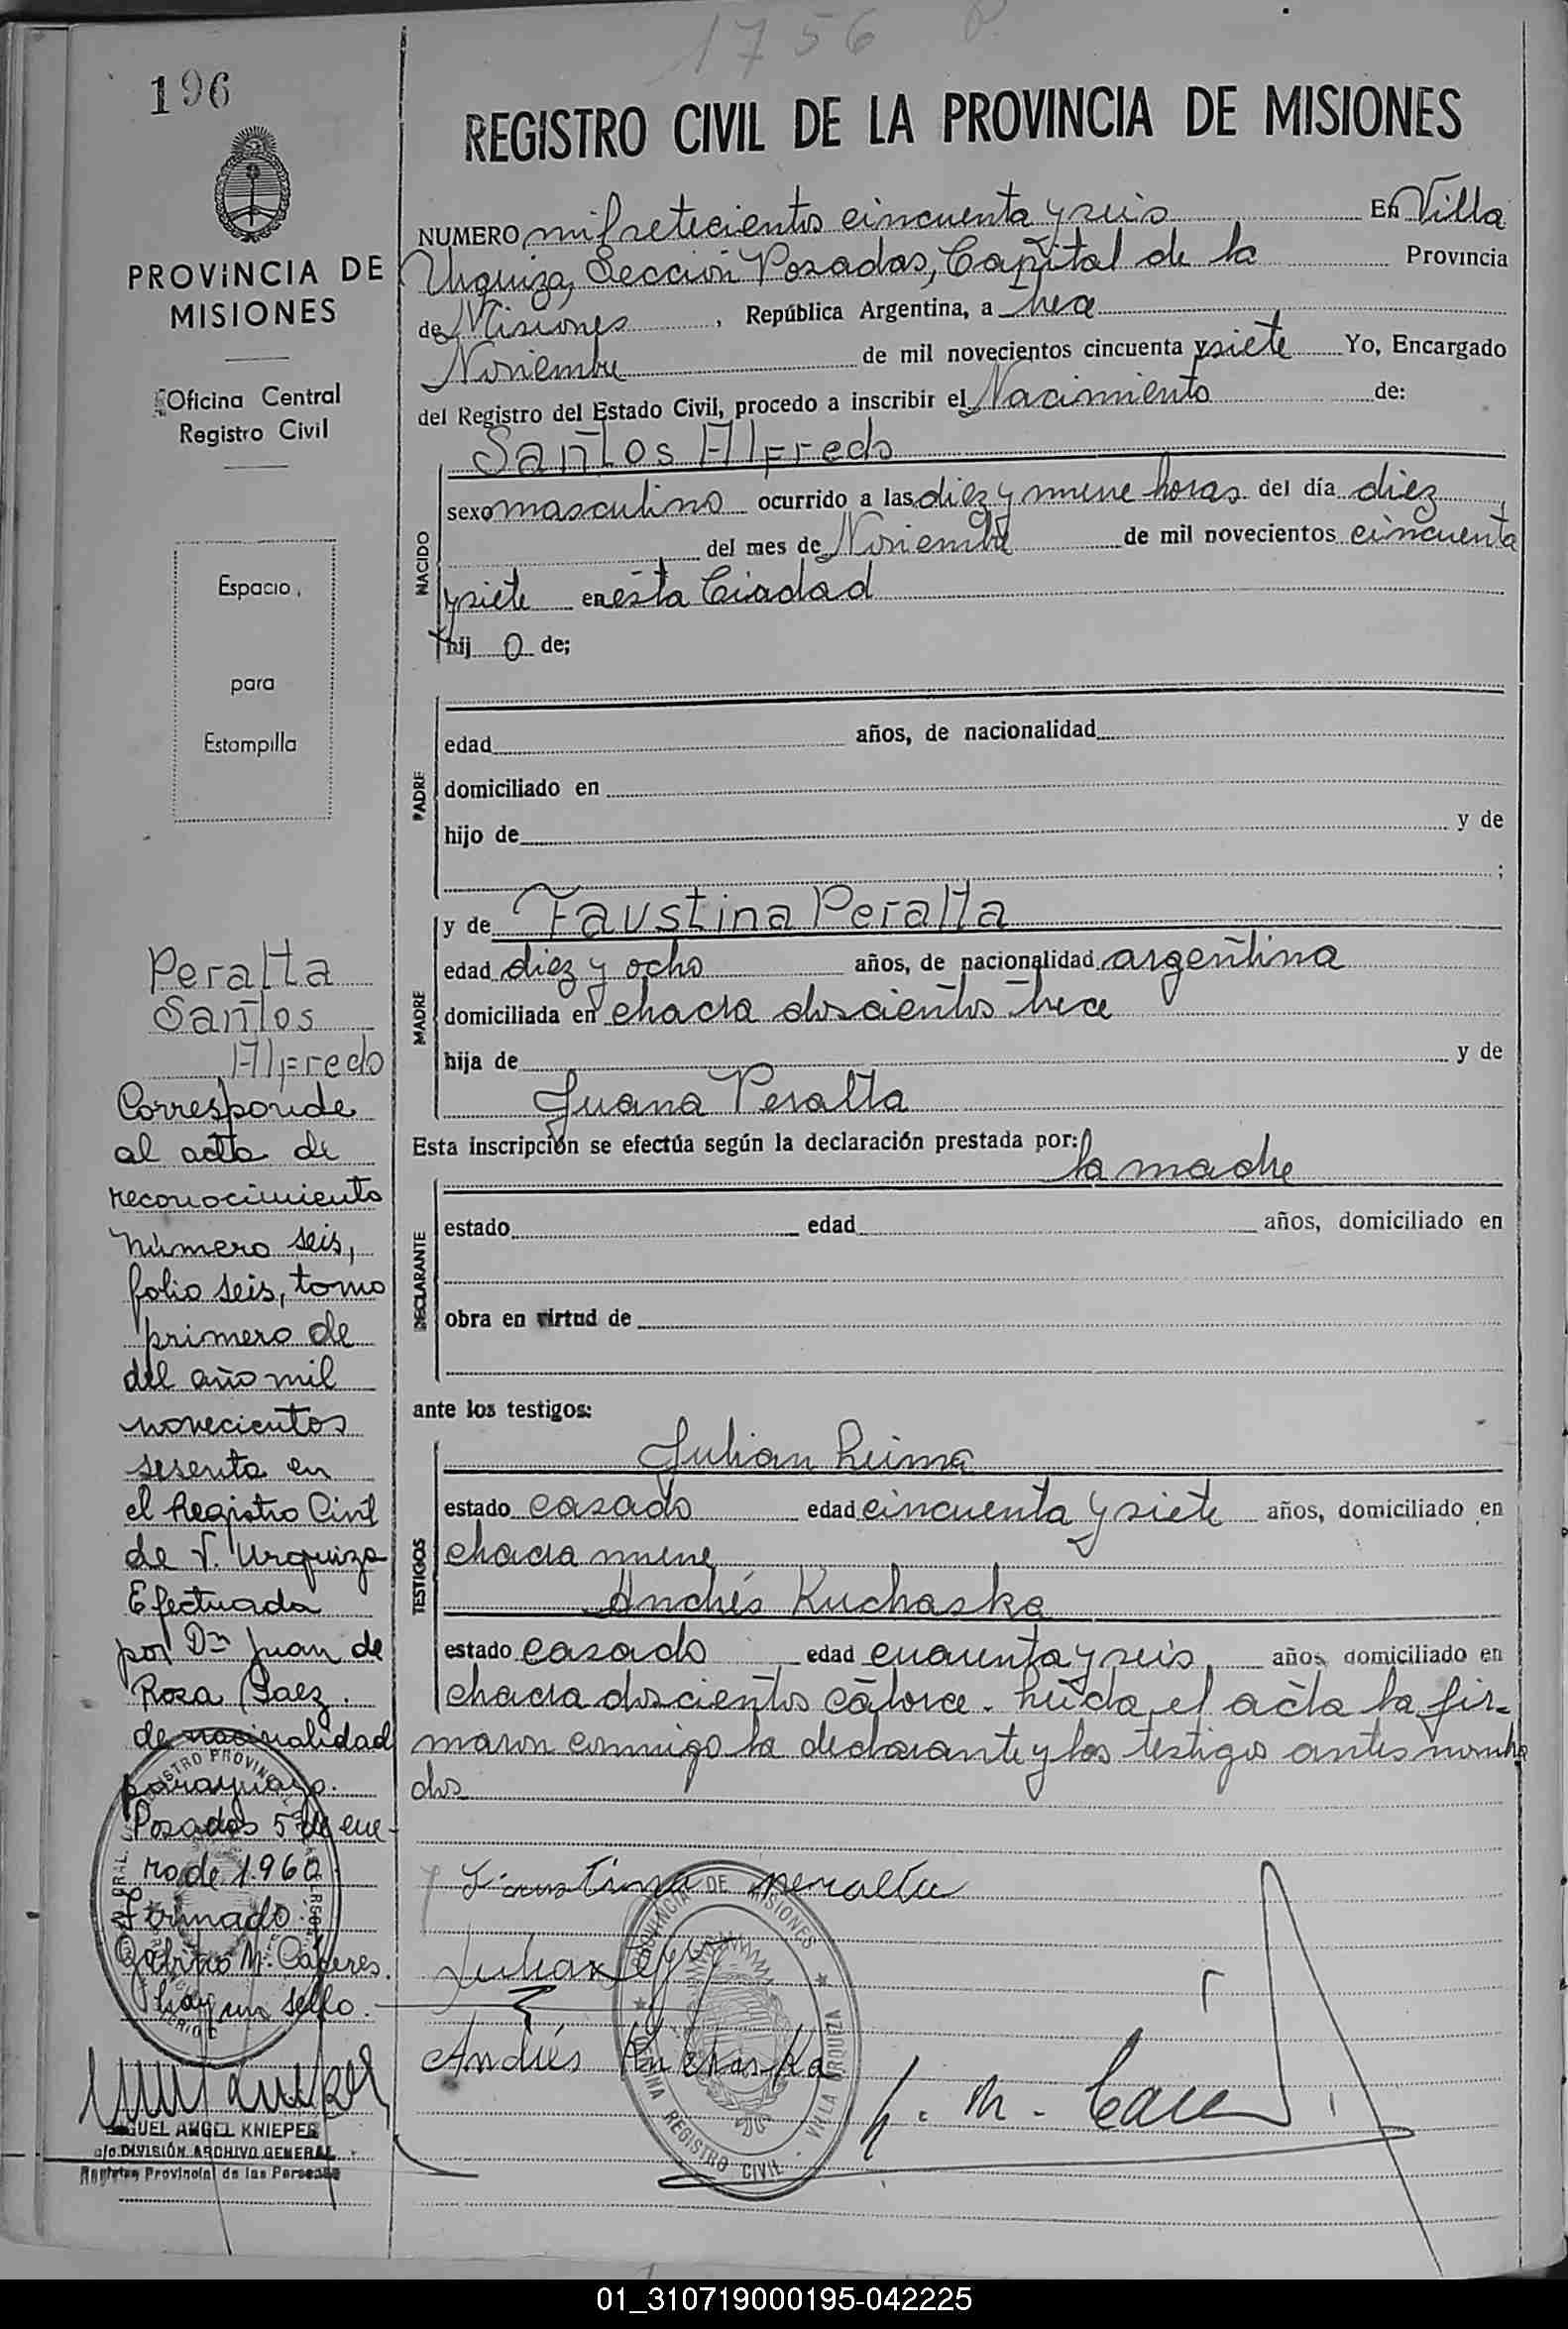 1756
196
PROVINCIA DE
MISIONES
Oficina Central
Registro Civil
Espacio
para
Estampilla
Peralta
Santos
Alfredo
Corresponde
al acta de
reconocimiento
número seis,
folio seis, tomo
primero de
del año mil
novecientos
sesenta en
el Registro Civil
de V. Urquiza
Efectuada
por Dn Juan de
Rosa Baez.
de nacionalidad
paraguayo.
Posadas 5 de ene-
ro de 1.960.
Firmado:
Gabino M. Cáceres.
hay un sello.
MIGUEL ANGEL KNIEPER
a/c DIVISIÓN ARCHIVO GENERAL
Registro Provincial de las Personas
REGISTRO CIVIL DE LA PROVINCIA DE MISIONES
NUMERO mil setecientos cincuenta y seis En Villa
Urquiza, Sección Posadas, Capital de la Provincia
de Misiones, República Argentina, a trece
Noviembre de mil novecientos cincuenta y siete Yo, Encargado
del Registro del Estado Civil, procedo a inscribir el Nacimiento de:
Santos Alfredo
NACIDO
sexo masculino ocurrido a las diez y nueve horas del día diez,
del mes de Noviembre de mil novecientos cincuenta
y siete en esta Ciudad
hij o de;
PADRE
edad años, de nacionalidad
domiciliado en
hijo de y de
;
MADRE
y de Faustina Peralta
edad diez y ocho años, de nacionalidad argentina
domiciliada en chacra doscientos trece
hija de y de
Juana Peralta
Esta inscripción se efectúa según la declaración prestada por:
la madre
DECLARANTE
estado edad años, domiciliado en
obra en virtud de
ante los testigos:
TESTIGOS
Julian
estado casado edad cincuenta y siete años, domiciliado en
chacra nueve
Andrés Kuchaska
estado casado edad cuarenta y seis años domiciliado en
chacra doscientos catorce. Leida el acta la fir-
maron conmigo la declarante y los testigos antes nombra
dos
Faustina peralta
Julian
Andrés Kuchaska
PROVINCIA DE MISIONES
OFICINA REGISTRO CIVIL - VILLA URQUIZA
01_310719000195-042225